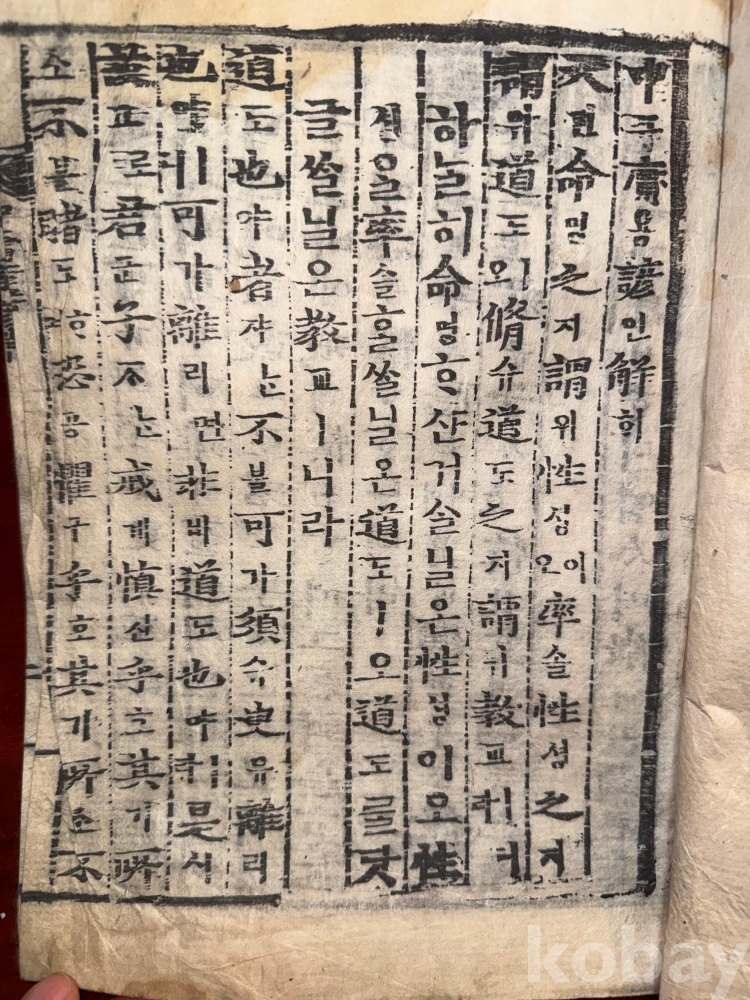 中듕庸용諺언解ᄒᆡ
天텬命명之지謂위性셩이오率솔性셩之지
謂위道도ㅣ오脩슈道도之지謂위敎교ㅣ니
하ᄂᆞᆯ히命명ᄒᆞ샨거ᄉᆞᆯ닐온性셩이오性
셩을率솔ᄒᆞᆯᄊᆞᆯ닐온道도ㅣ오道도ᄅᆞᆯ닷
글ᄊᆞᆯ닐온敎교ㅣ니라
道도也야者쟈ᄂᆞᆫ不블可가須슈臾유離리
也야ㅣ니可가離리면非비道도也야ㅣ라是시
故고로君군子ᄌᆞᄂᆞᆫ戒계愼신乎호其기所
소不블睹도ᄒᆞ며恐공懼구乎호其기所소不
kobay